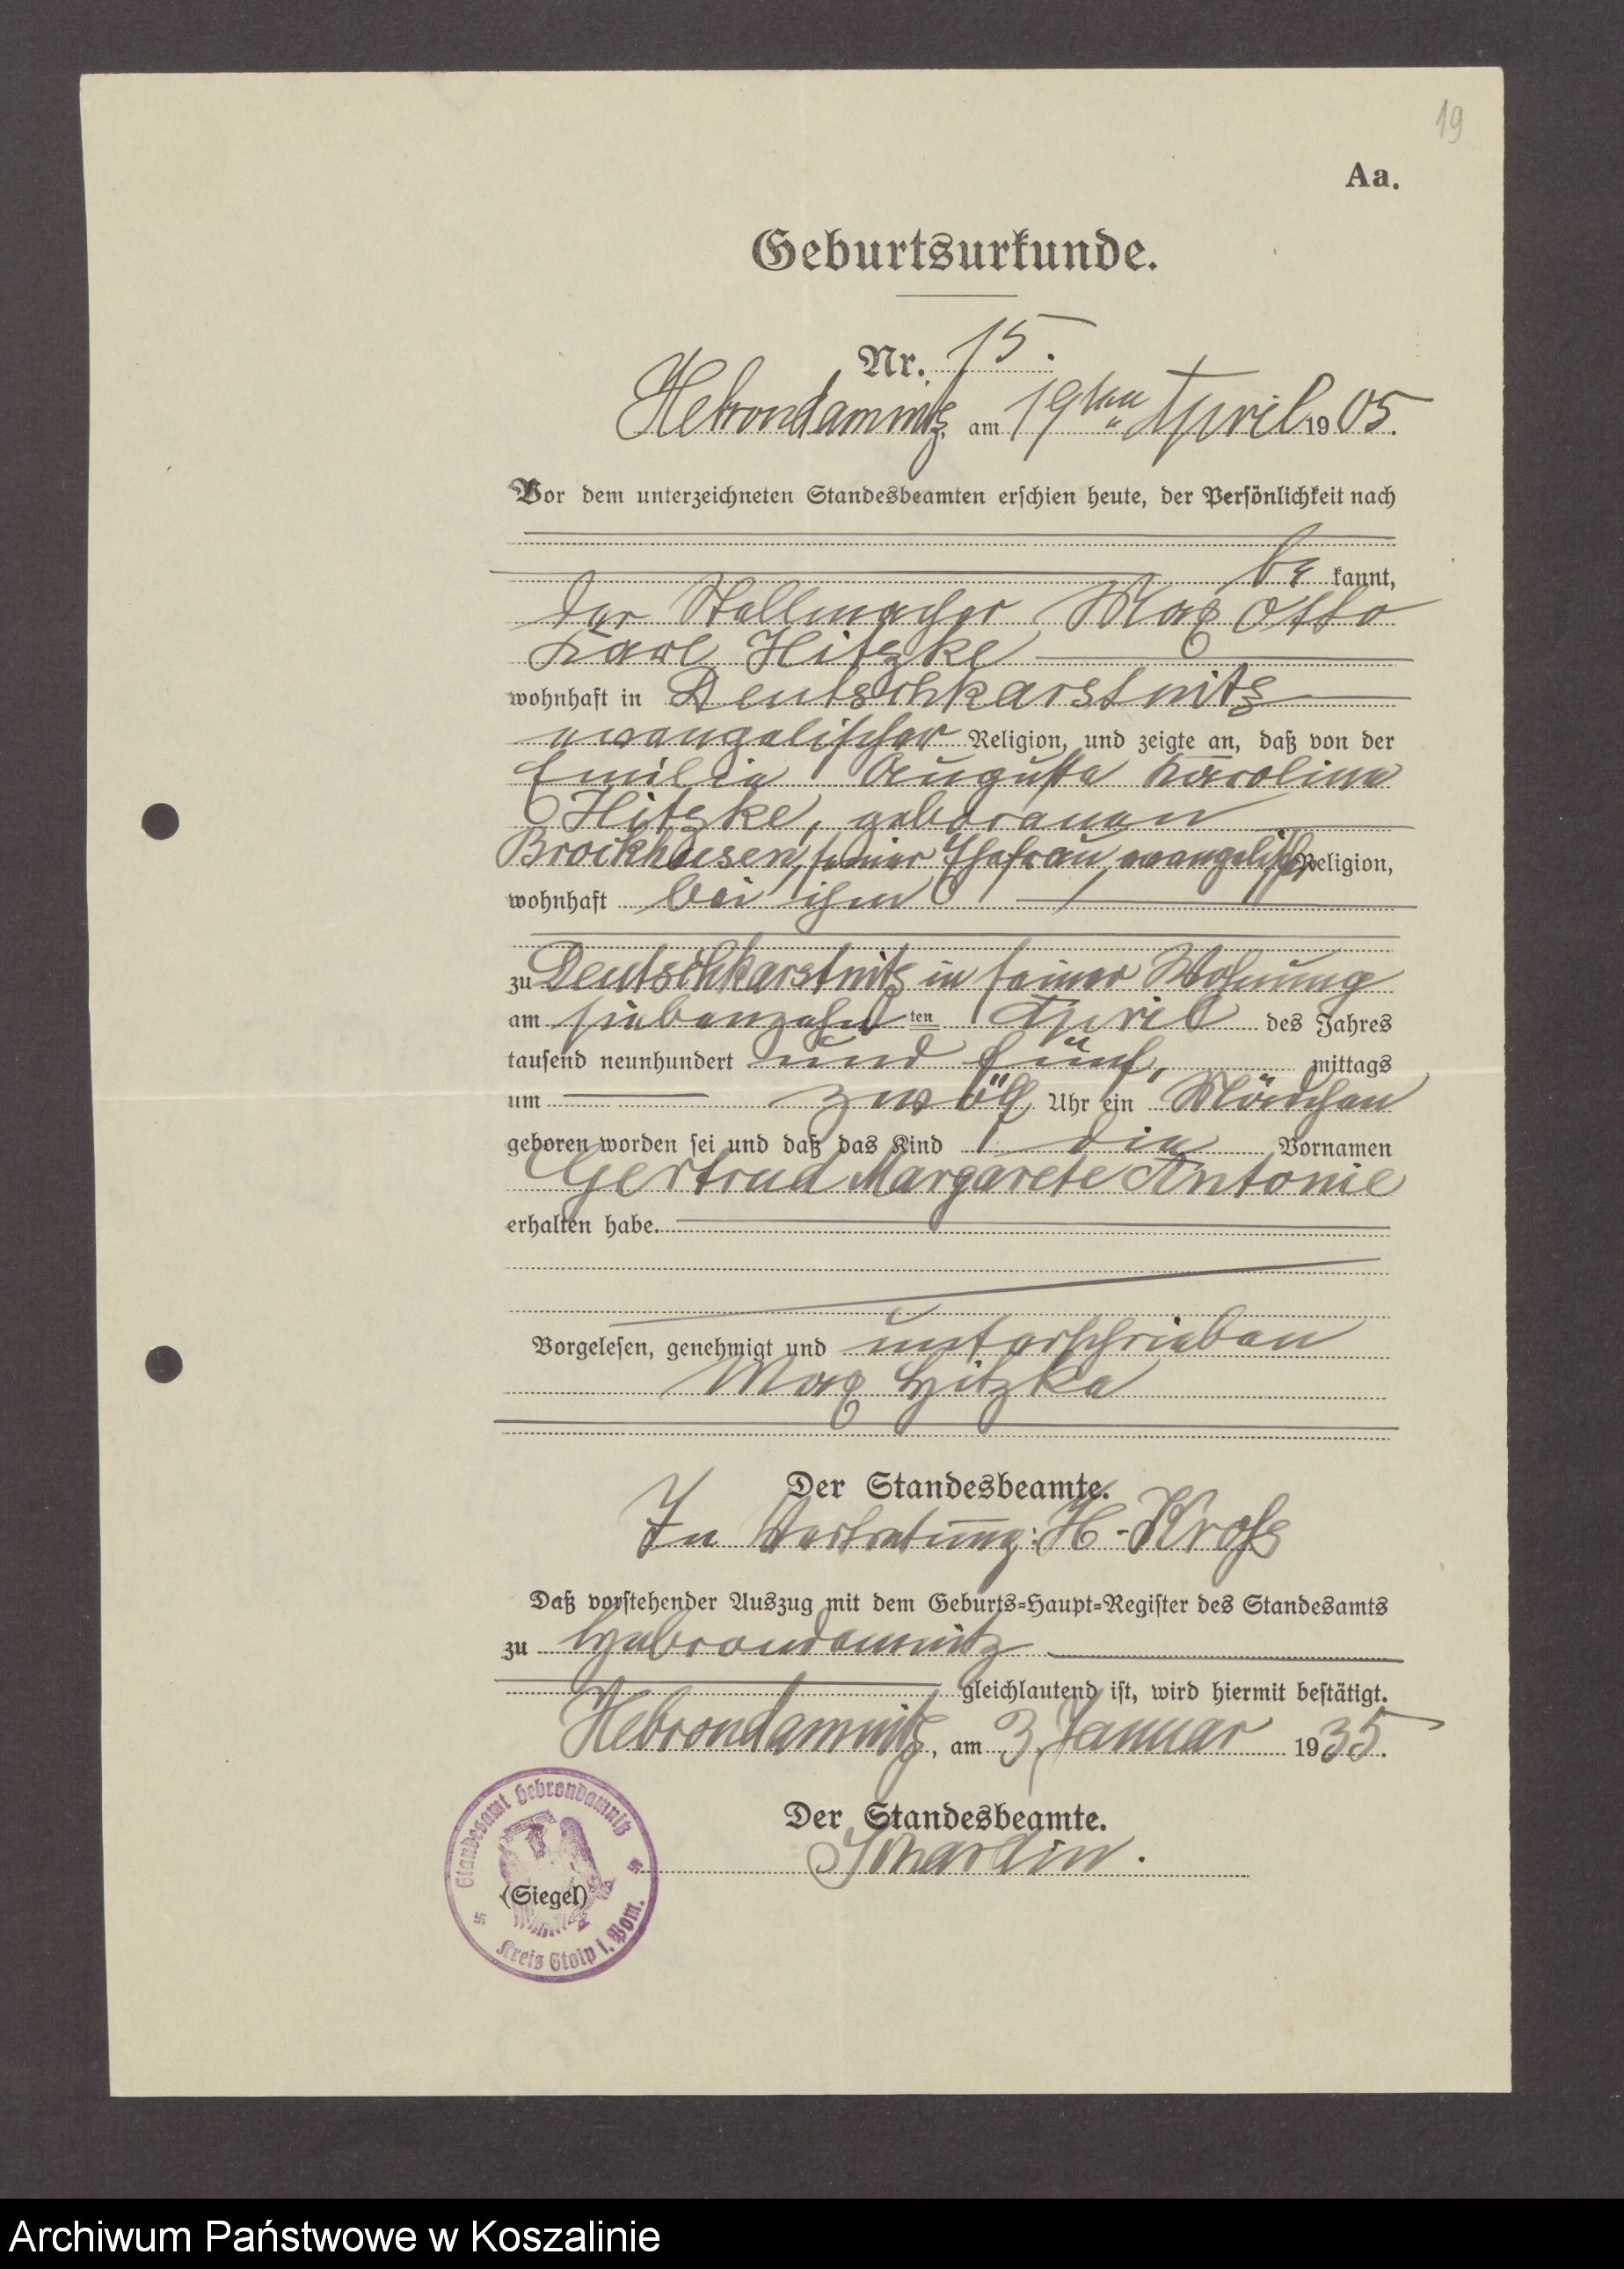 19
Aa.
Geburtsurkunde.
Nr. 15.
Hebrondamnitz, am 19ten April 1905.
Vor dem unterzeichneten Standesbeamten erschien heute, der Persönlichkeit nach
be kannt,
der Stellmacher Max Otto
Karl Hitzke
wohnhaft in Deutschkarstnitz
evangelischer Religion, und zeigte an, daß von der
Emilie Auguste Karoline
Hitzke, geborenen
Brockhusen, seiner Ehefrau, evangelisch, Religion,
wohnhaft bei ihm
zu Deutschkarstnitz in seiner Wohnung
am siebenzehn ten April des Jahres
tausend neunhundert und fünf, mittags
um zwölf Uhr ein Mädchen
geboren worden sei und daß das Kind die Vornamen
Gertrud Margarete Antonie
erhalten habe.
Vorgelesen, genehmigt und unterschrieben
Max Hitzke
Der Standesbeamte.
In Vertretung: H. Kroß
Daß vorstehender Auszug mit dem Geburts-Haupt-Register des Standesamts
zu Hebrondamnitz
gleichlautend ist, wird hiermit bestätigt.
Hebrondamnitz, am 3. Januar 1935.
Der Standesbeamte.
(Siegel)
Standesamt Hebrondamnitz
Kreis Stolp i. Pom.
Archiwum Państwowe w Koszalinie